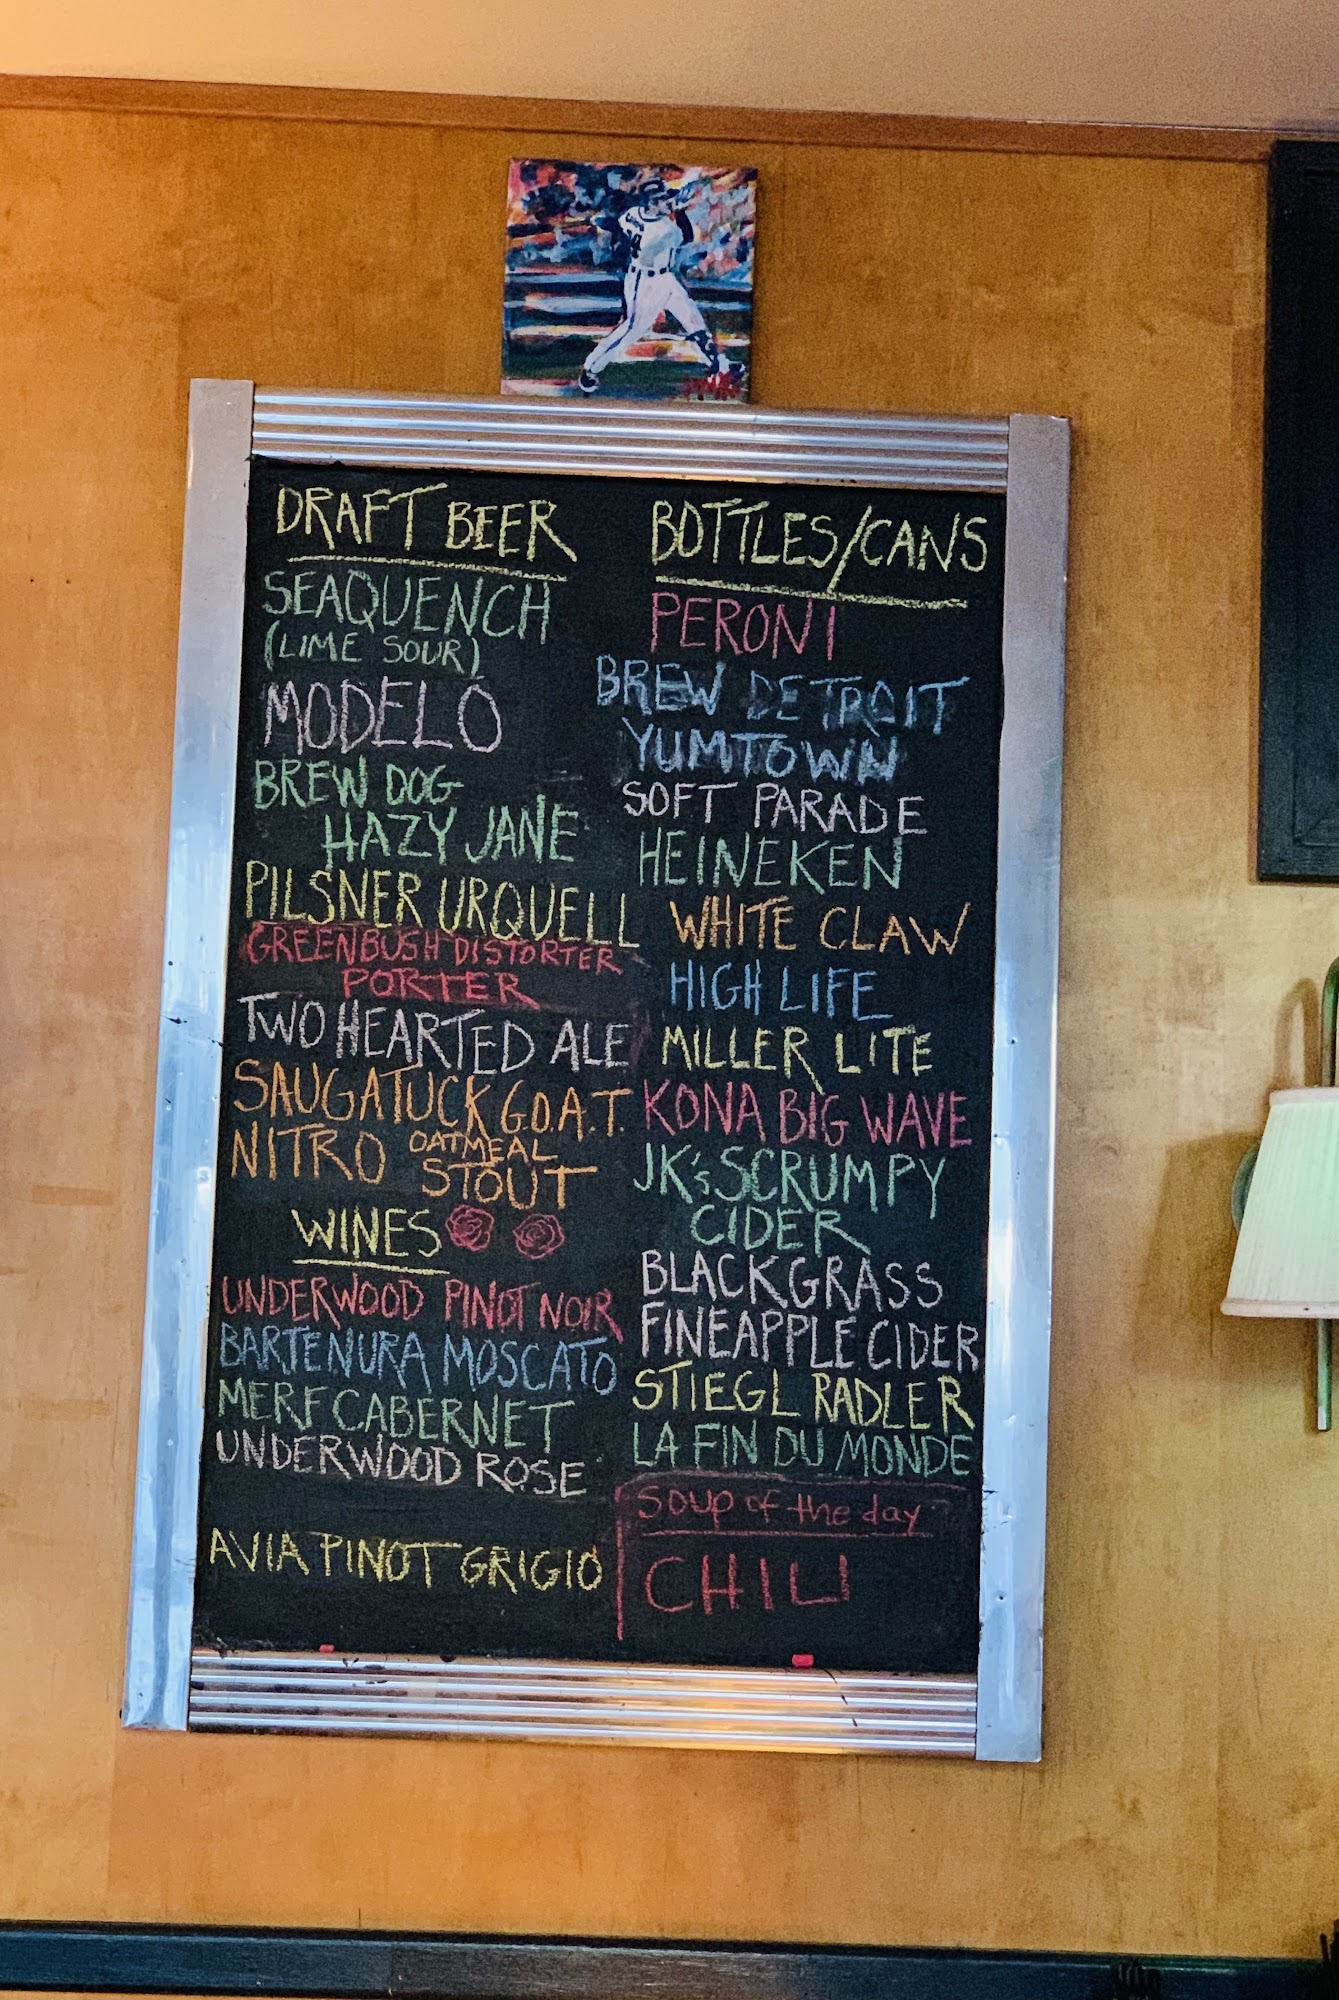 DRAFT BEER
SEAQUENCH
(LIME SOUR)
MODELO
BREW DOG
HAZY JANE
PILSNER URQUELL
GREENBUSH DISTORTER
PORTER
TWO HEARTED ALE
SAUGATUCK G.O.A.T.
NITRO OATMEAL
STOUT
WINES
UNDERWOOD PINOT NOIR
BARTENURA MOSCATO
MERF CABERNET
UNDERWOOD ROSE
AVIA PINOT GRIGIO
BOTTLES/CANS
PERONI
BREW DETROIT
YUMTOWN
SOFT PARADE
HEINEKEN
WHITE CLAW
HIGH LIFE
MILLER LITE
KONA BIG WAVE
JK's SCRUMPY
CIDER
BLACKGRASS
FINEAPPLE CIDER
STIEGL RADLER
LA FIN DU MONDE
soup of the day
CHILI